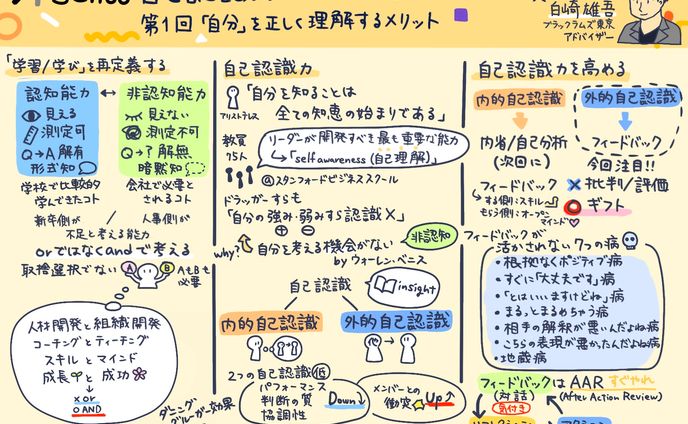 第1回「自分」を正しく理解するメリット
白崎雄吾
ブラックラムズ東京
アドバイザー
「学習/学び」を再定義する
認知能力
↔
非認知能力
見える
測定可
Q→A 解有
形式知
見えない
測定不可
Q→? 解無
暗黙知
学校で比較的
学んできたコト
会社で必要と
されるコト
新卒側が
人事側が
不足と考える能力
orではなくandで考える
取捨選択でない
A
B
AもBも
必要
人材開発と組織開発
コーチングとティーチング
スキルとマインド
成長と成功
↓
× or
○ AND
自己認識力
「自分を知ることは
全ての知恵の始まりである」
アリストテレス
教員
75人
リーダーが開発すべき最も重要な能力
↳「self awareness(自己理解)」
@スタンフォードビジネススクール
ドラッガーすらも
「自分の強み・弱みすら認識×」
⊕
⊖
why?
自分を考える機会がない
by ウォーレン・ベニス
非認知
自己認識
insight
内的自己認識
外的自己認識
2つの自己認識低
パフォーマンス
判断の質
協調性
Down↓
メンバーとの
衝突
Up↑
ダニング
クルーガー効果
自己認識力を高める
内的自己認識
外的自己認識
↓
↓
内省/自己分析
(次回に)
フィードバック
今回注目!!
フィードバック
する側:スキル
もらう側:オープン
マインド
× 批判/評価
○ ギフト
フィードバックが
活かされない7つの病
・根拠なくポジティブ病
・すぐに「大丈夫です」病
・「とはいいますけどね」病
・まるっとまるめちゃう病
・相手の解釈が悪いんだよね病
・こちらの表現が悪かったんだよね病
・地蔵病
フィードバックはAARすぐやれ
(対話)
(After Action Review)
気付き